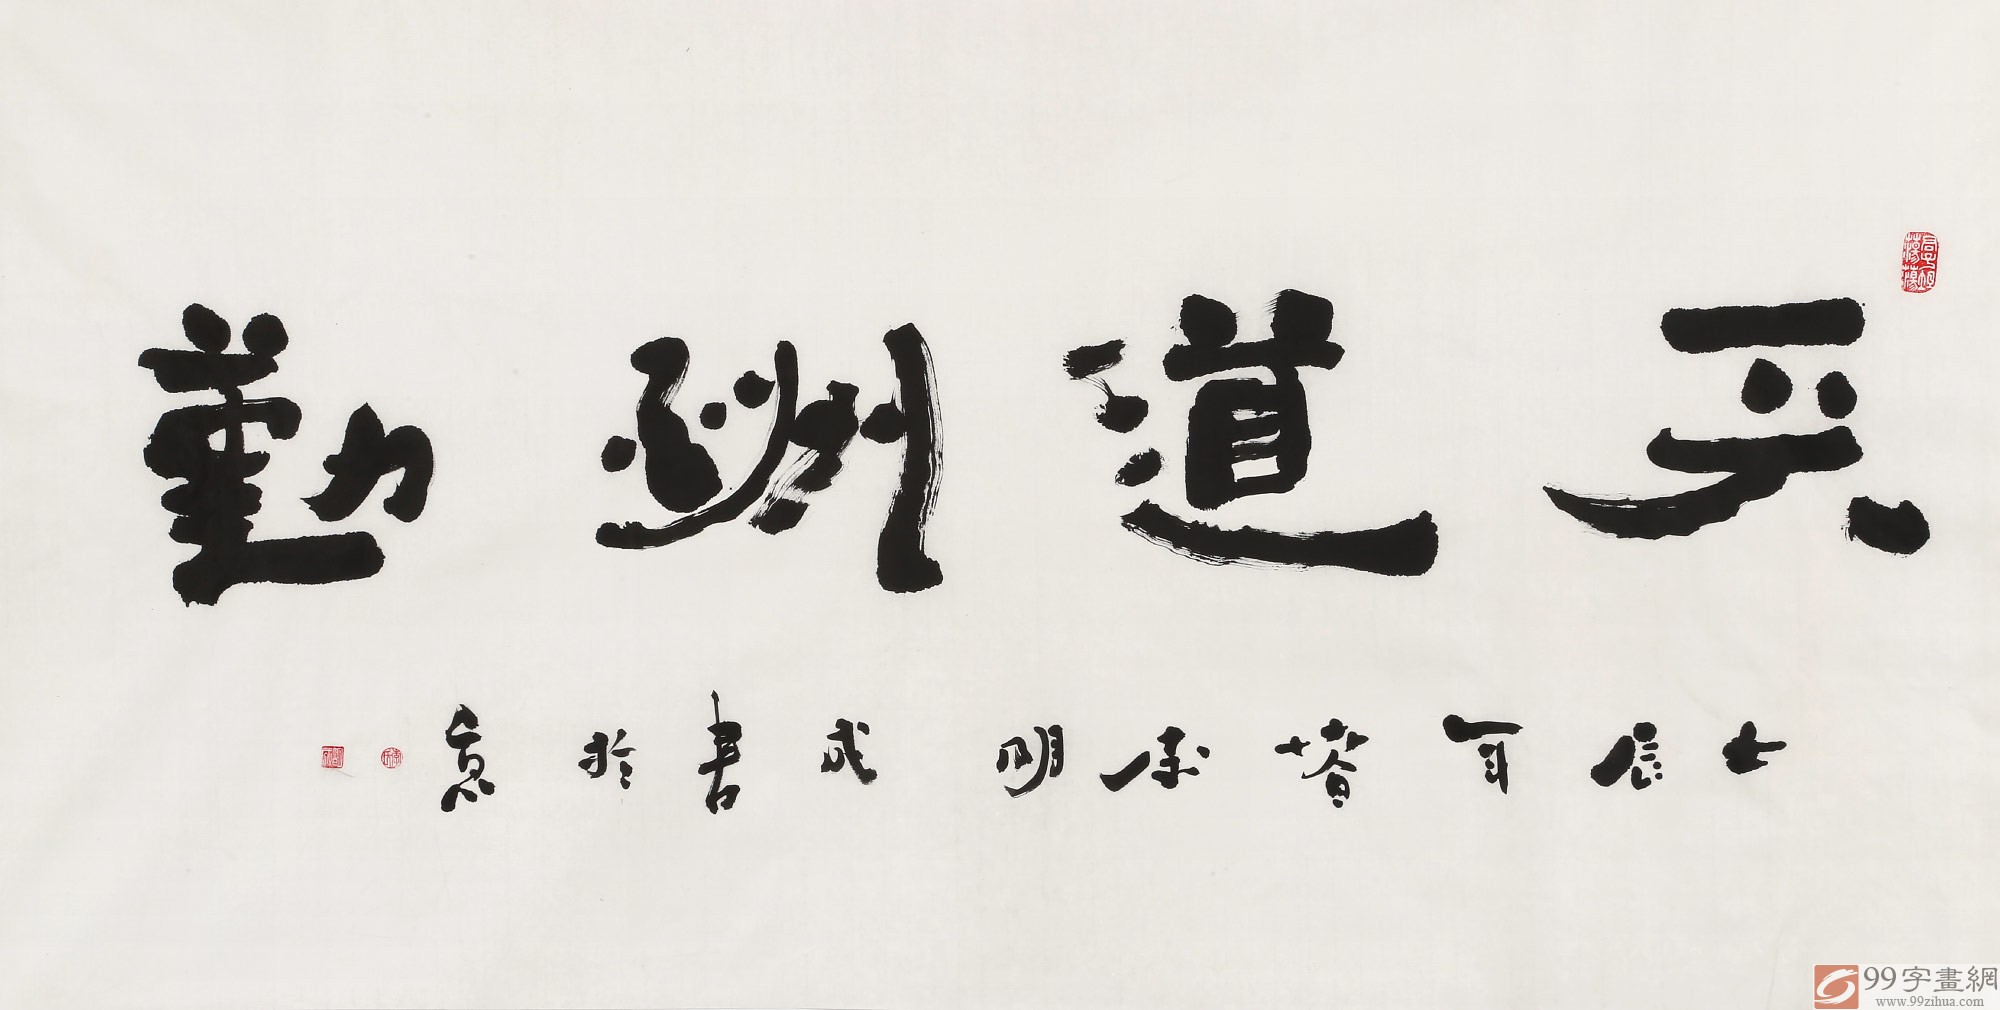 天道酬勤
壬辰年春李明成書於京
99字畫網
www.99zihua.com